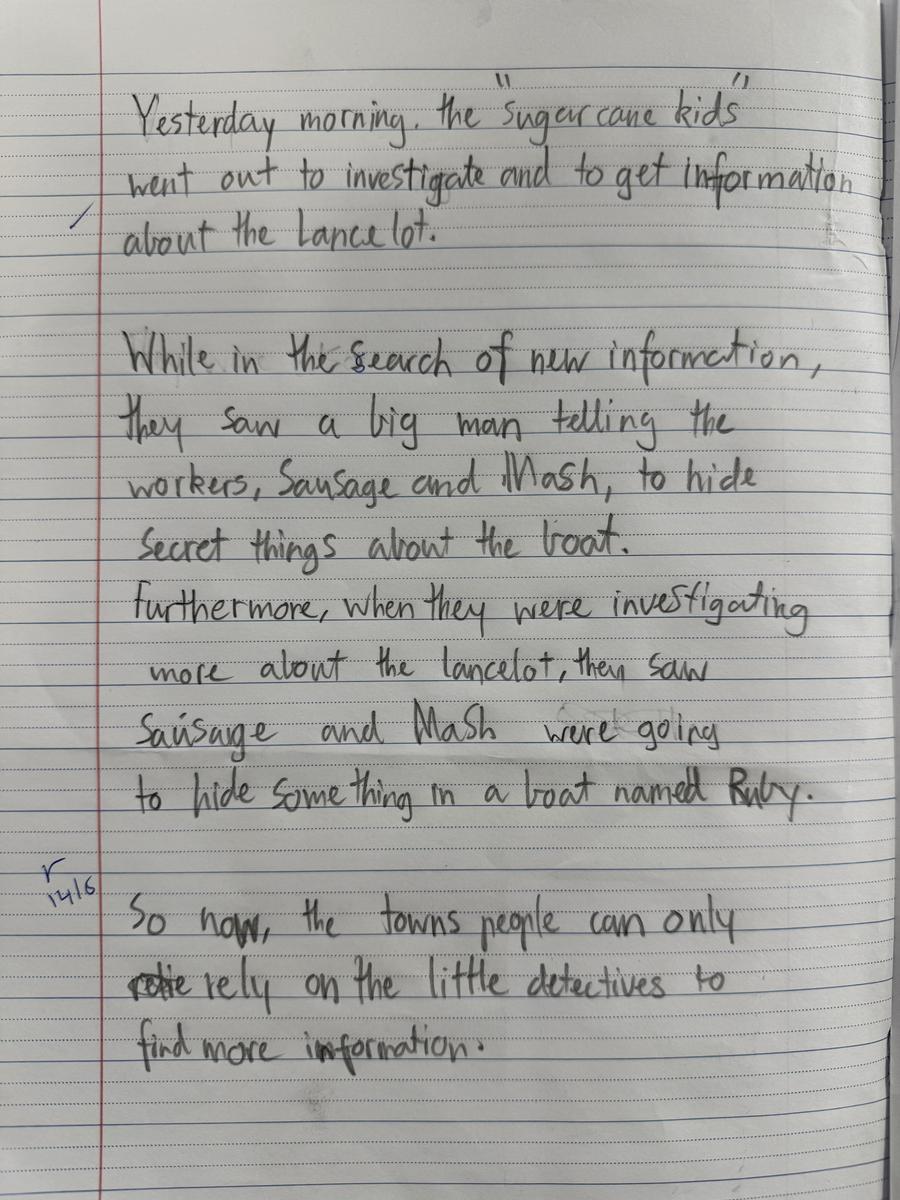 Yesterday morning, the "sugarcane kids"
went out to investigate and to get information
about the Lancelot.
While in the search of new information,
they saw a big man telling the
workers, Sausage and Mash, to hide
secret things about the boat.
furthermore, when they were investigating
more about the lancelot, they saw
Sausage and Mash were going
to hide something in a boat named Ruby.
14/6
So now, the towns people can only
rely on the little detectives to
find more information.